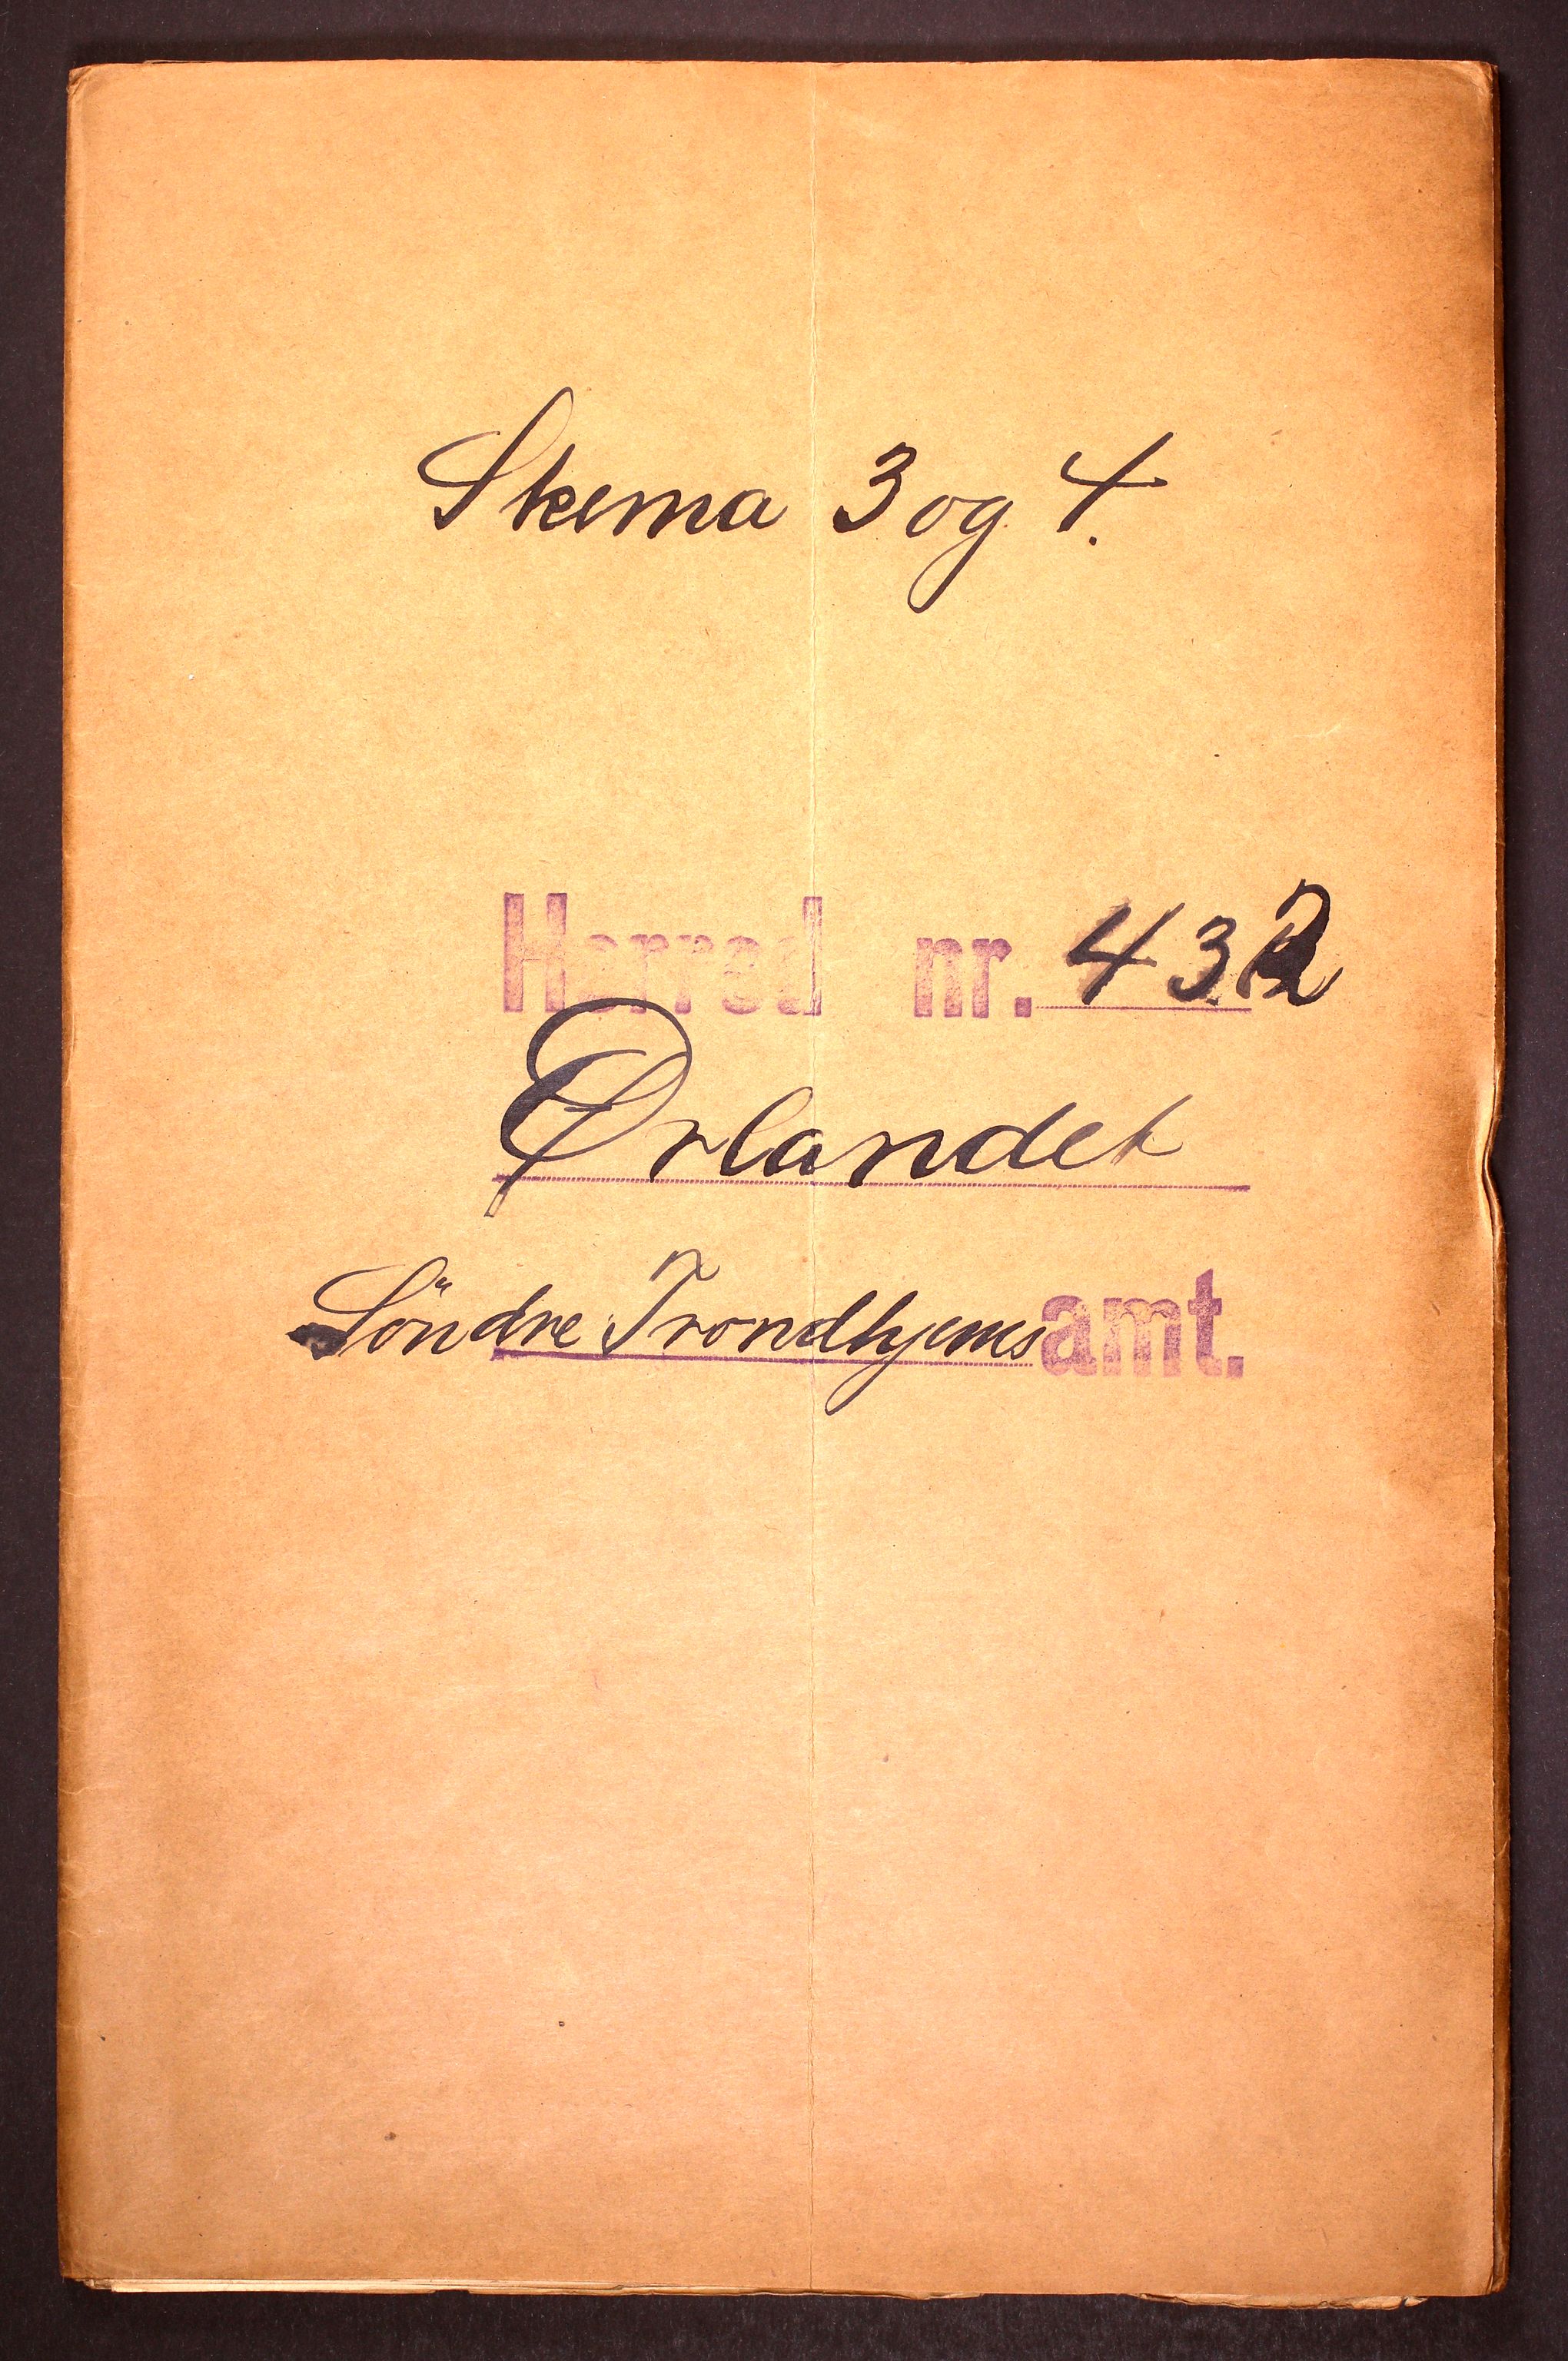 Skema 3 og 4.
Herred nr. 432
Ørlandet
Söndre Trondhjems amt.